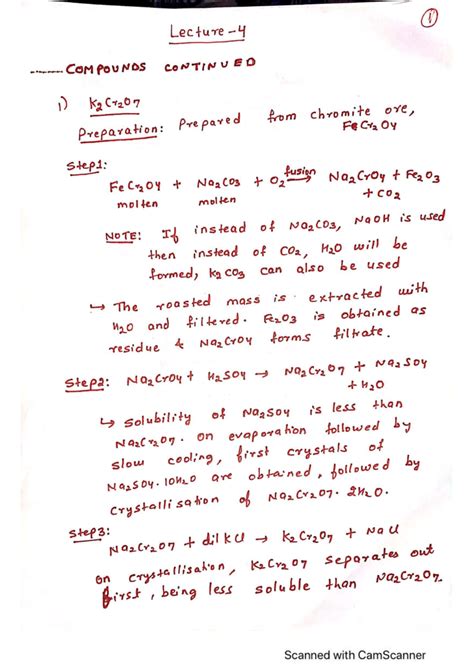 ①
Lecture-4
------- COMPOUNDS CONTINUED
1) K2Cr2O7
Preparation: Prepared from chromite ore,
FeCr2O4
Step1:
FeCr2O4 + Na2CO3 + O2 fusion→ Na2CrO4 + Fe2O3
molten molten + CO2
NOTE: If instead of Na2CO3, NaOH is used
then instead of CO2, H2O will be
formed, K2CO3 can also be used
↳ The roasted mass is extracted with
H2O and filtered. Fe2O3 is obtained as
residue & Na2CrO4 forms filtrate.
Step2: Na2CrO4 + H2SO4 → Na2Cr2O7 + Na2SO4
+ H2O
↳ Solubility of Na2SO4 is less than
Na2Cr2O7. On evaporation followed by
slow cooling, first crystals of
Na2SO4.10H2O are obtained, followed by
crystallisation of Na2Cr2O7.2H2O.
Step3:
Na2Cr2O7 + dil KCl → K2Cr2O7 + NaCl
On crystallisation, K2Cr2O7 separates out
first, being less soluble than Na2Cr2O7.
Scanned with CamScanner